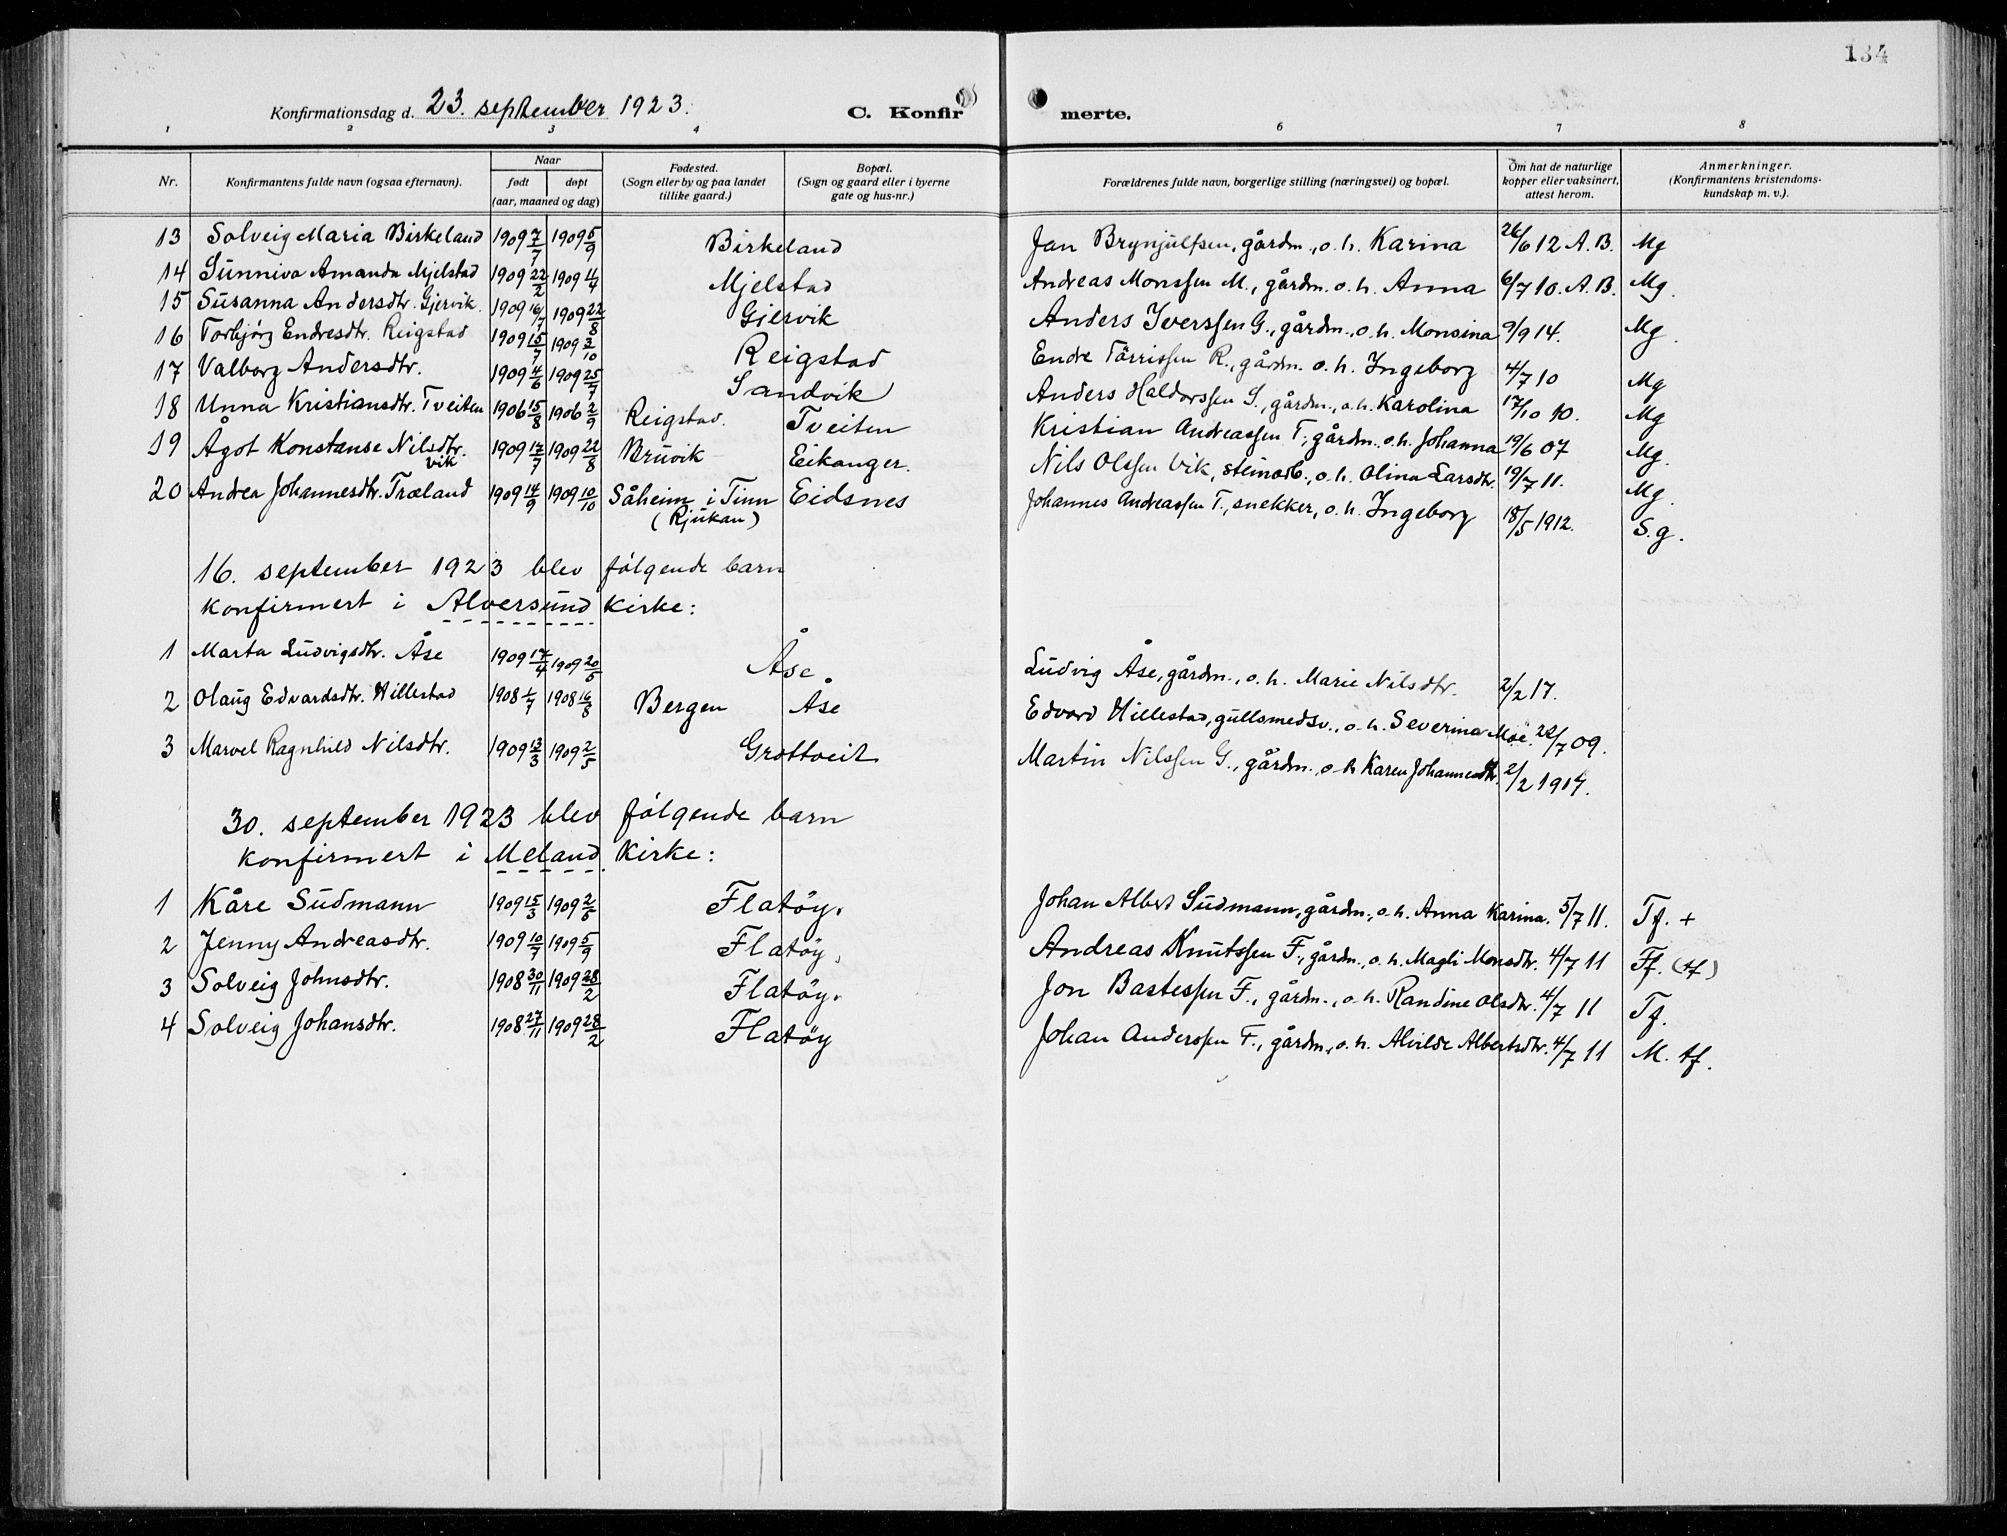 134
Konfirmationsdag d. 23. september 1923. C. Konfirmerte.
1 2 3 4 6 7 8
Nr. Konfirmantens fulde navn (ogsaa efternavn). Naar født døpt (aar, maaned og dag) Fødested. (Sogn eller by og paa landet tillike gaard.) Bopæl. (Sogn og gaard eller i byerne gate og hus-nr.) Forældrenes fulde navn, borgerlige stilling (næringsvei) og bopæl. Om hat de naturlige kopper eller vaksinert, attest herom. Anmerkninger. (Konfirmantens kristendomskundskap m. v.).
13 Solveig Maria Birkeland 1909 7/7 1909 5/9 Birkeland Jan Brynjulfsen, gårdm., o. h. Karina 26/6 12 A. B. Mg
14 Sunniva Amanda Mjelstad 1909 22/2 1909 4/4 Mjelstad Andreas Monssen M., gårdm. o. h. Anna 6/7 10. A. B. Mg.
15 Susanna Andersdtr. Gjervik 1909 16/7 1909 22/8 Gjervik Anders Iverssen G., gårdm., o. h. Monsina 9/9 14. Mg.
16 Torbjørg Endresdtr. Reigstad 1909 15/7 1909 3/10 Reigstad Endre Törrissen R., gårdm. o. h. Ingeborg 4/7 10 Mg
17 Valborg Andersdtr. 1909 4/6 1909 25/7 Sandvik Anders Haldorssen S., gårdm., o. h. Karolina 17/10 10. Mg
18 Unna Kristiansdtr. Tveiten 1906 15/8 1906 2/9 Reigstad. Tveiten Kristian Andreassen T., gårdm. o. h. Johanna 19/6 07 Mg.
19 Ågot Konstanse Nilsdtr. Vik 1909 17/7 1909 22/8 Bruvik Eikanger. Nils Olssen Vik, steinarb., o. h. Olina Larsdtr. 19/7 11. Mg.
20 Andrea Johannesdtr. Træland 1909 14/9 1909 10/10 Såheim i Tinn (Rjukan) Eidsnes Johannes Andreassen T., snekker, o. h. Ingeborg 18/5 1912. S. g.
16. september 1923 blev følgende barn
konfirmert i Alversund kirke:
1 Marta Ludvigsdtr. Åse 1909 17/4 1909 20/5 Åse Ludvig Åse, gårdm., o. h. Marie Nilsdtr. 2/2 17.
2 Olaug Edvardsdtr. Hillestad 1908 1/7 1908 16/8 Bergen Åse Edvard Hillestad, gullsmedsv., o. h. Severina Moe. 22/7 09.
3 Marvel Ragnhild Nilsdtr. 1909 13/3 1909 2/5 Grottveit Martin Nilssen G., gårdm., o h Karen Johannesdtr. 2/2 1917.
30. september 1923 blev følgende barn
konfirmert i Meland kirke:
1 Kåre Sudmann 1909 15/3 1909 2/5 Flatöy. Johan Albert Sudmann, gårdm., o. h. Anna Karina. 5/7 11. Tf. +
2 Jenny Andreasdtr. 1909 10/7 1909 5/9 Flatöy. Andreas Knutssen F., gårdm., o. h. Magli Monsdtr. 4/7 11 Tf. (tf)
3 Solveig Johnsdtr. 1908 30/11 1909 28/2 Flatöy. Jon Bastessen F., gårdm., o. h. Randine Olsdtr. 4/7 11 Tf.
4 Solveig Johansdtr. 1908 27/11 1909 28/2 Flatöy Johan Anderssen F., gårdm., o. h. Alvilde Albertsdtr. 4/7 11 M. tf.